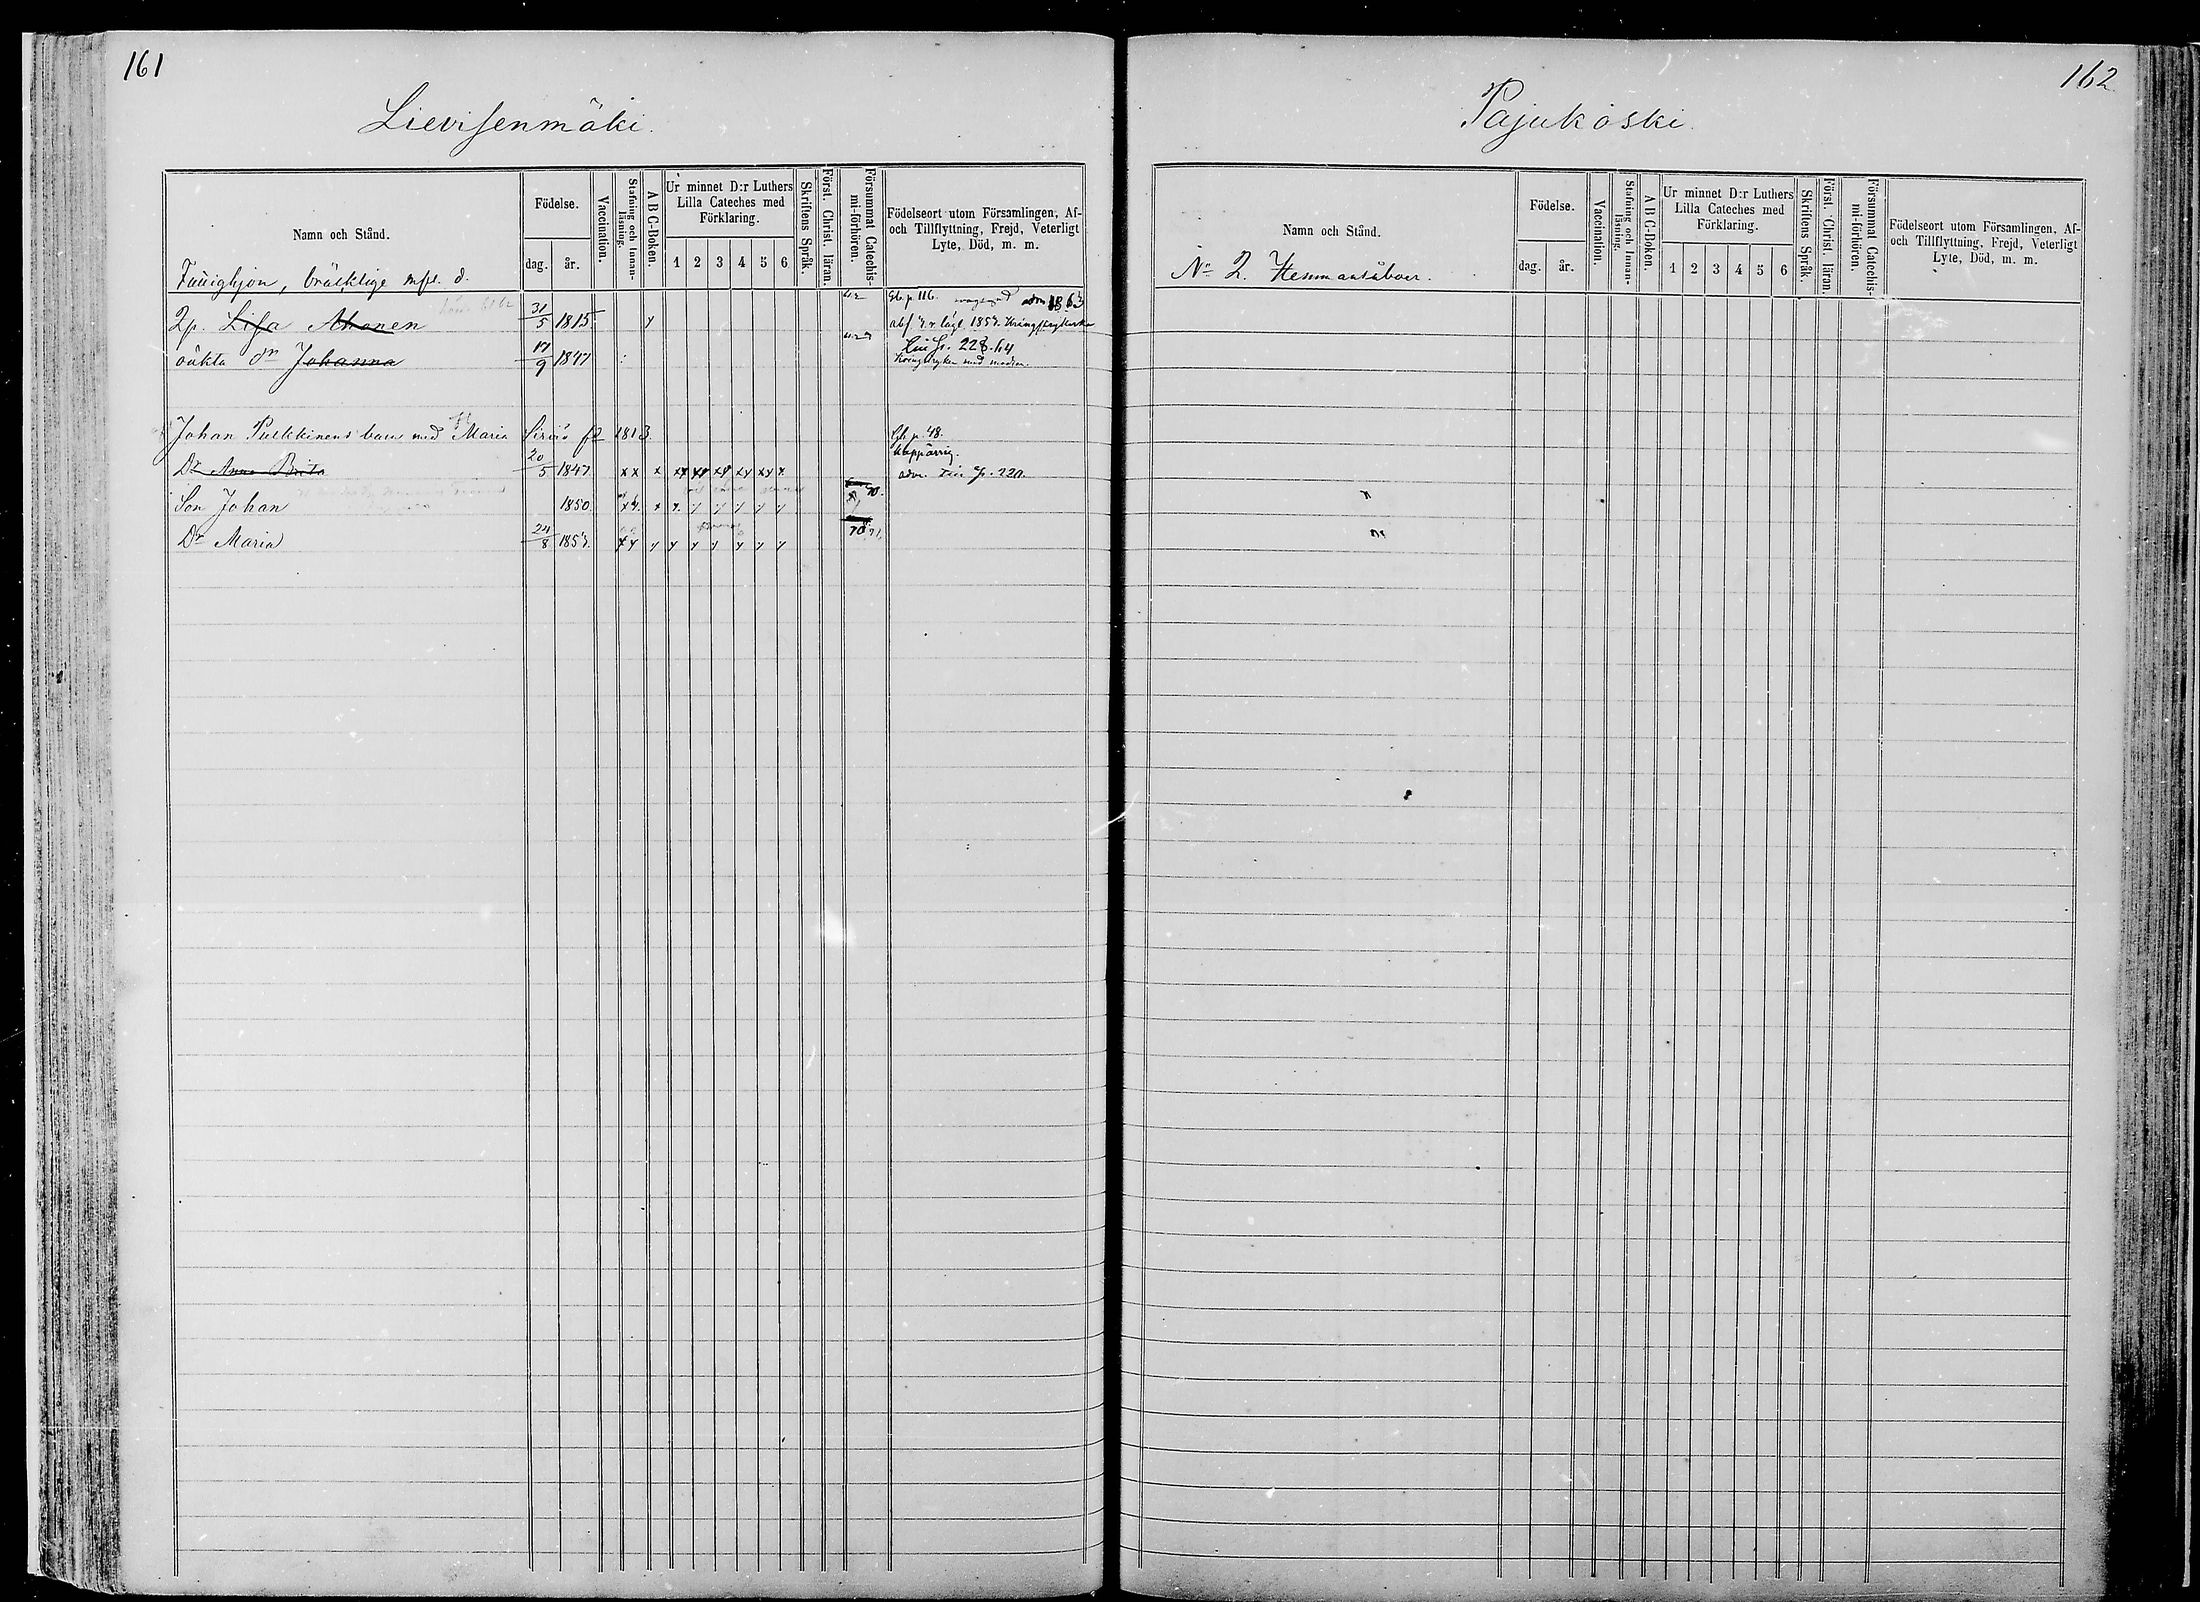 161
Lievisenmäki.
Namn och Stånd.
Födelse.
dag.
år.
Vaccination.
Stafning och Innan-läsning.
A B C-Boken.
Ur minnet D:r Luthers
Lilla Cateches med
Förklaring.
1 2 3 4 5 6
Skriftens Språk.
Först. Christ. läran.
Försummat Catechis-mi-förhören.
Födelseort utom Församlingen, Af-
och Tillflyttning, Frejd, Veterligt
Lyte, Död, m. m.
bräcklige mfl. d.
2p. Lisa Ahonen 31/5 1815 y Gb. p. 116. 1863
oäkta dr Johanna 17/9 1847 228.64
med modren.
Johan Pulkkinens barn med Maria Sirviö fd 1813. p. 48.
Dr Anna Brita 20/5 1847 x x x xy xy xy xy xy x p. 220.
Son Johan 1850. x y y y y y 70.
Dr Maria 24/8 1857. x y y y y y y y y 70 71
162
Pajukoski.
Namn och Stånd.
Födelse.
dag.
år.
Vaccination.
Stafning och Innan-läsning.
A B C-Boken.
Ur minnet D:r Luthers
Lilla Cateches med
Förklaring.
1 2 3 4 5 6
Skriftens Språk.
Först. Christ. läran.
Försummat Catechis-mi-förhören.
Födelseort utom Församlingen, Af-
och Tillflyttning, Frejd, Veterligt
Lyte, Död, m. m.
No 2. Hemmansåboer.